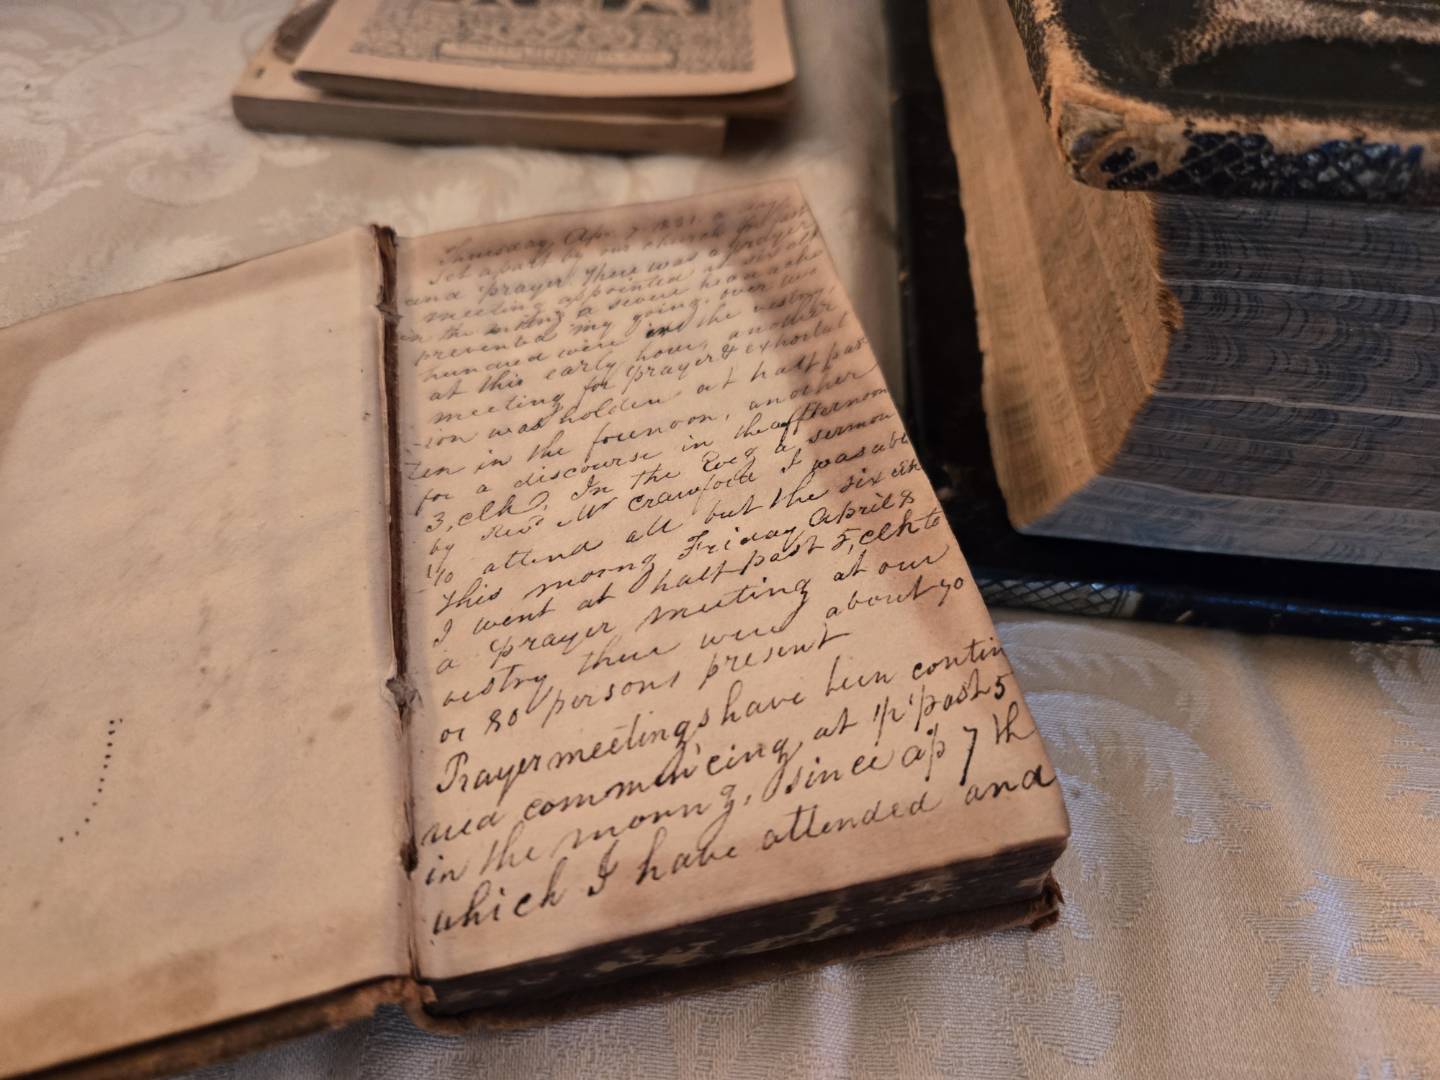 Thursday Apr 7 1831 a day
set apart by our church for fast
and prayer. There was a prayer
meeting appointed at six clk
in the morng a severe headache
prevented my going. over two
hundred were in the vestry,
at this early hour, another
meeting for prayer & exhortat
-ion was holden at half pas
ten in the forenoon, another
for a discourse in the afternoon
3, clk, In the Eveg a sermon
by Revd Mr Crawford I was abl
to attend all but the six clk
this morng Friday April 8
I went at half past 5, clk to
a prayer meeting at our
vestry there were about 70
or 80 persons present
Prayer meetings have been contin
ued commencing at 1/2 past 5
in the morng, since ap 7th
which I have attended and